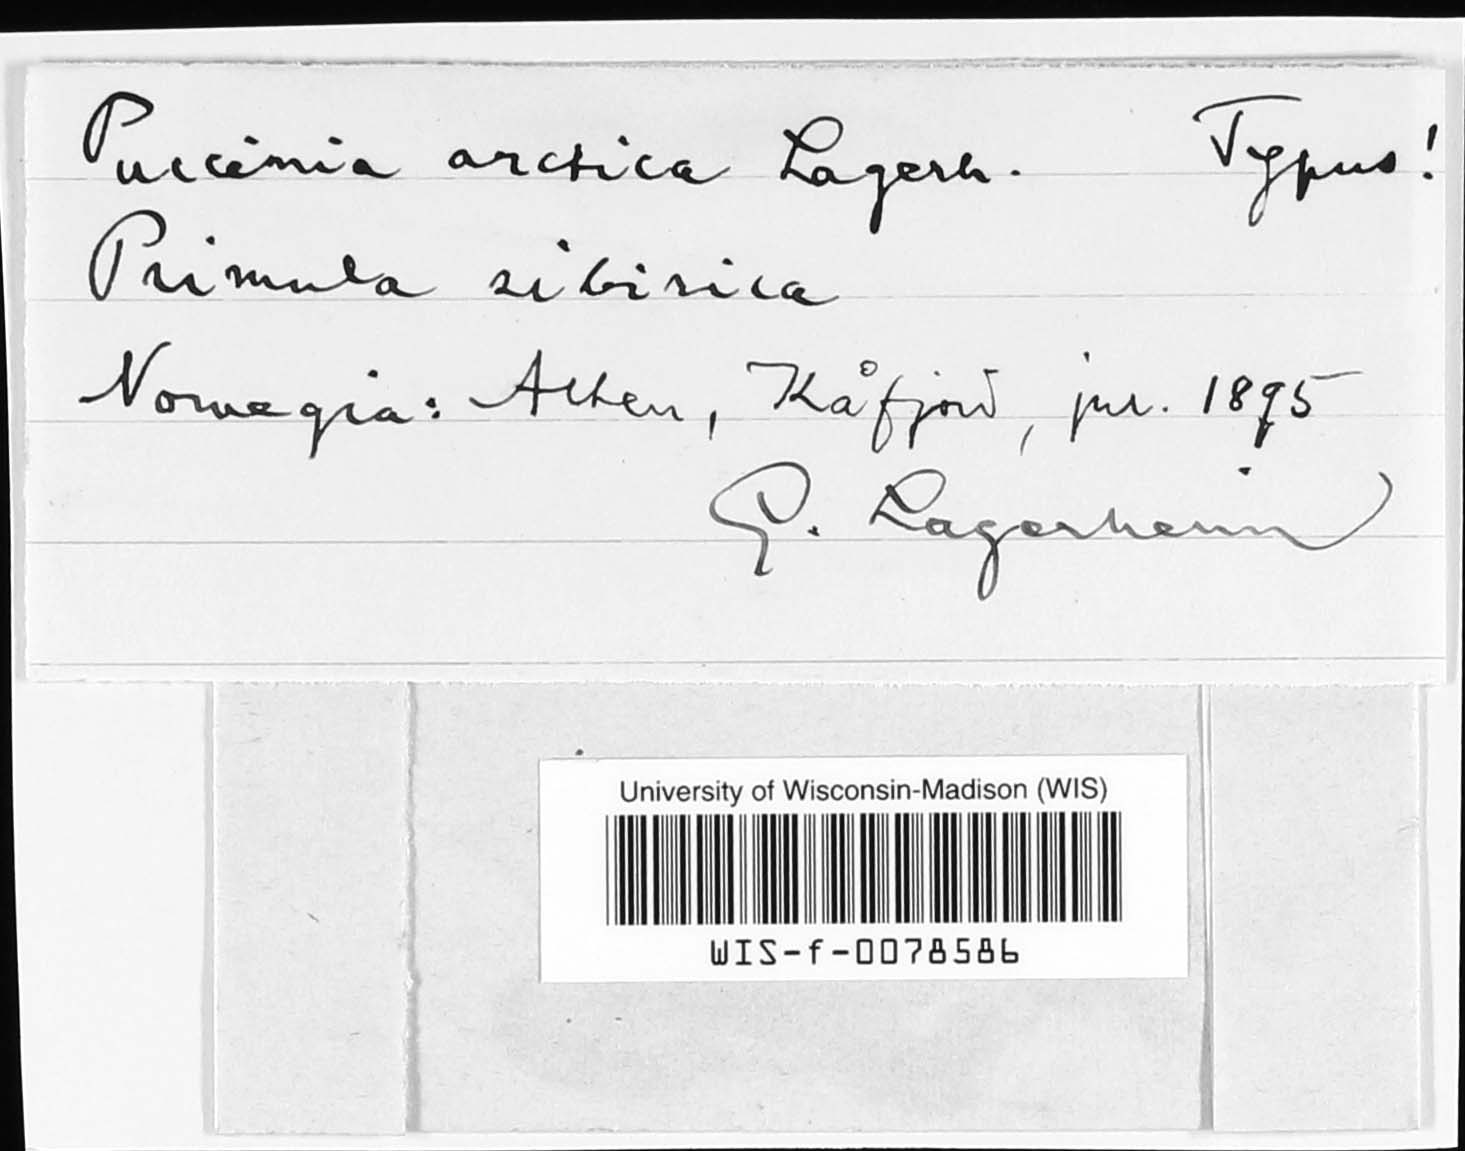 Puccinia arctica Lagerh. Typus!
Primula sibirica
Norvegia: Alten, Kåfjord, jul. 1895
G. Lagerheim
University of Wisconsin-Madison (WIS)
WIS-f-0078586